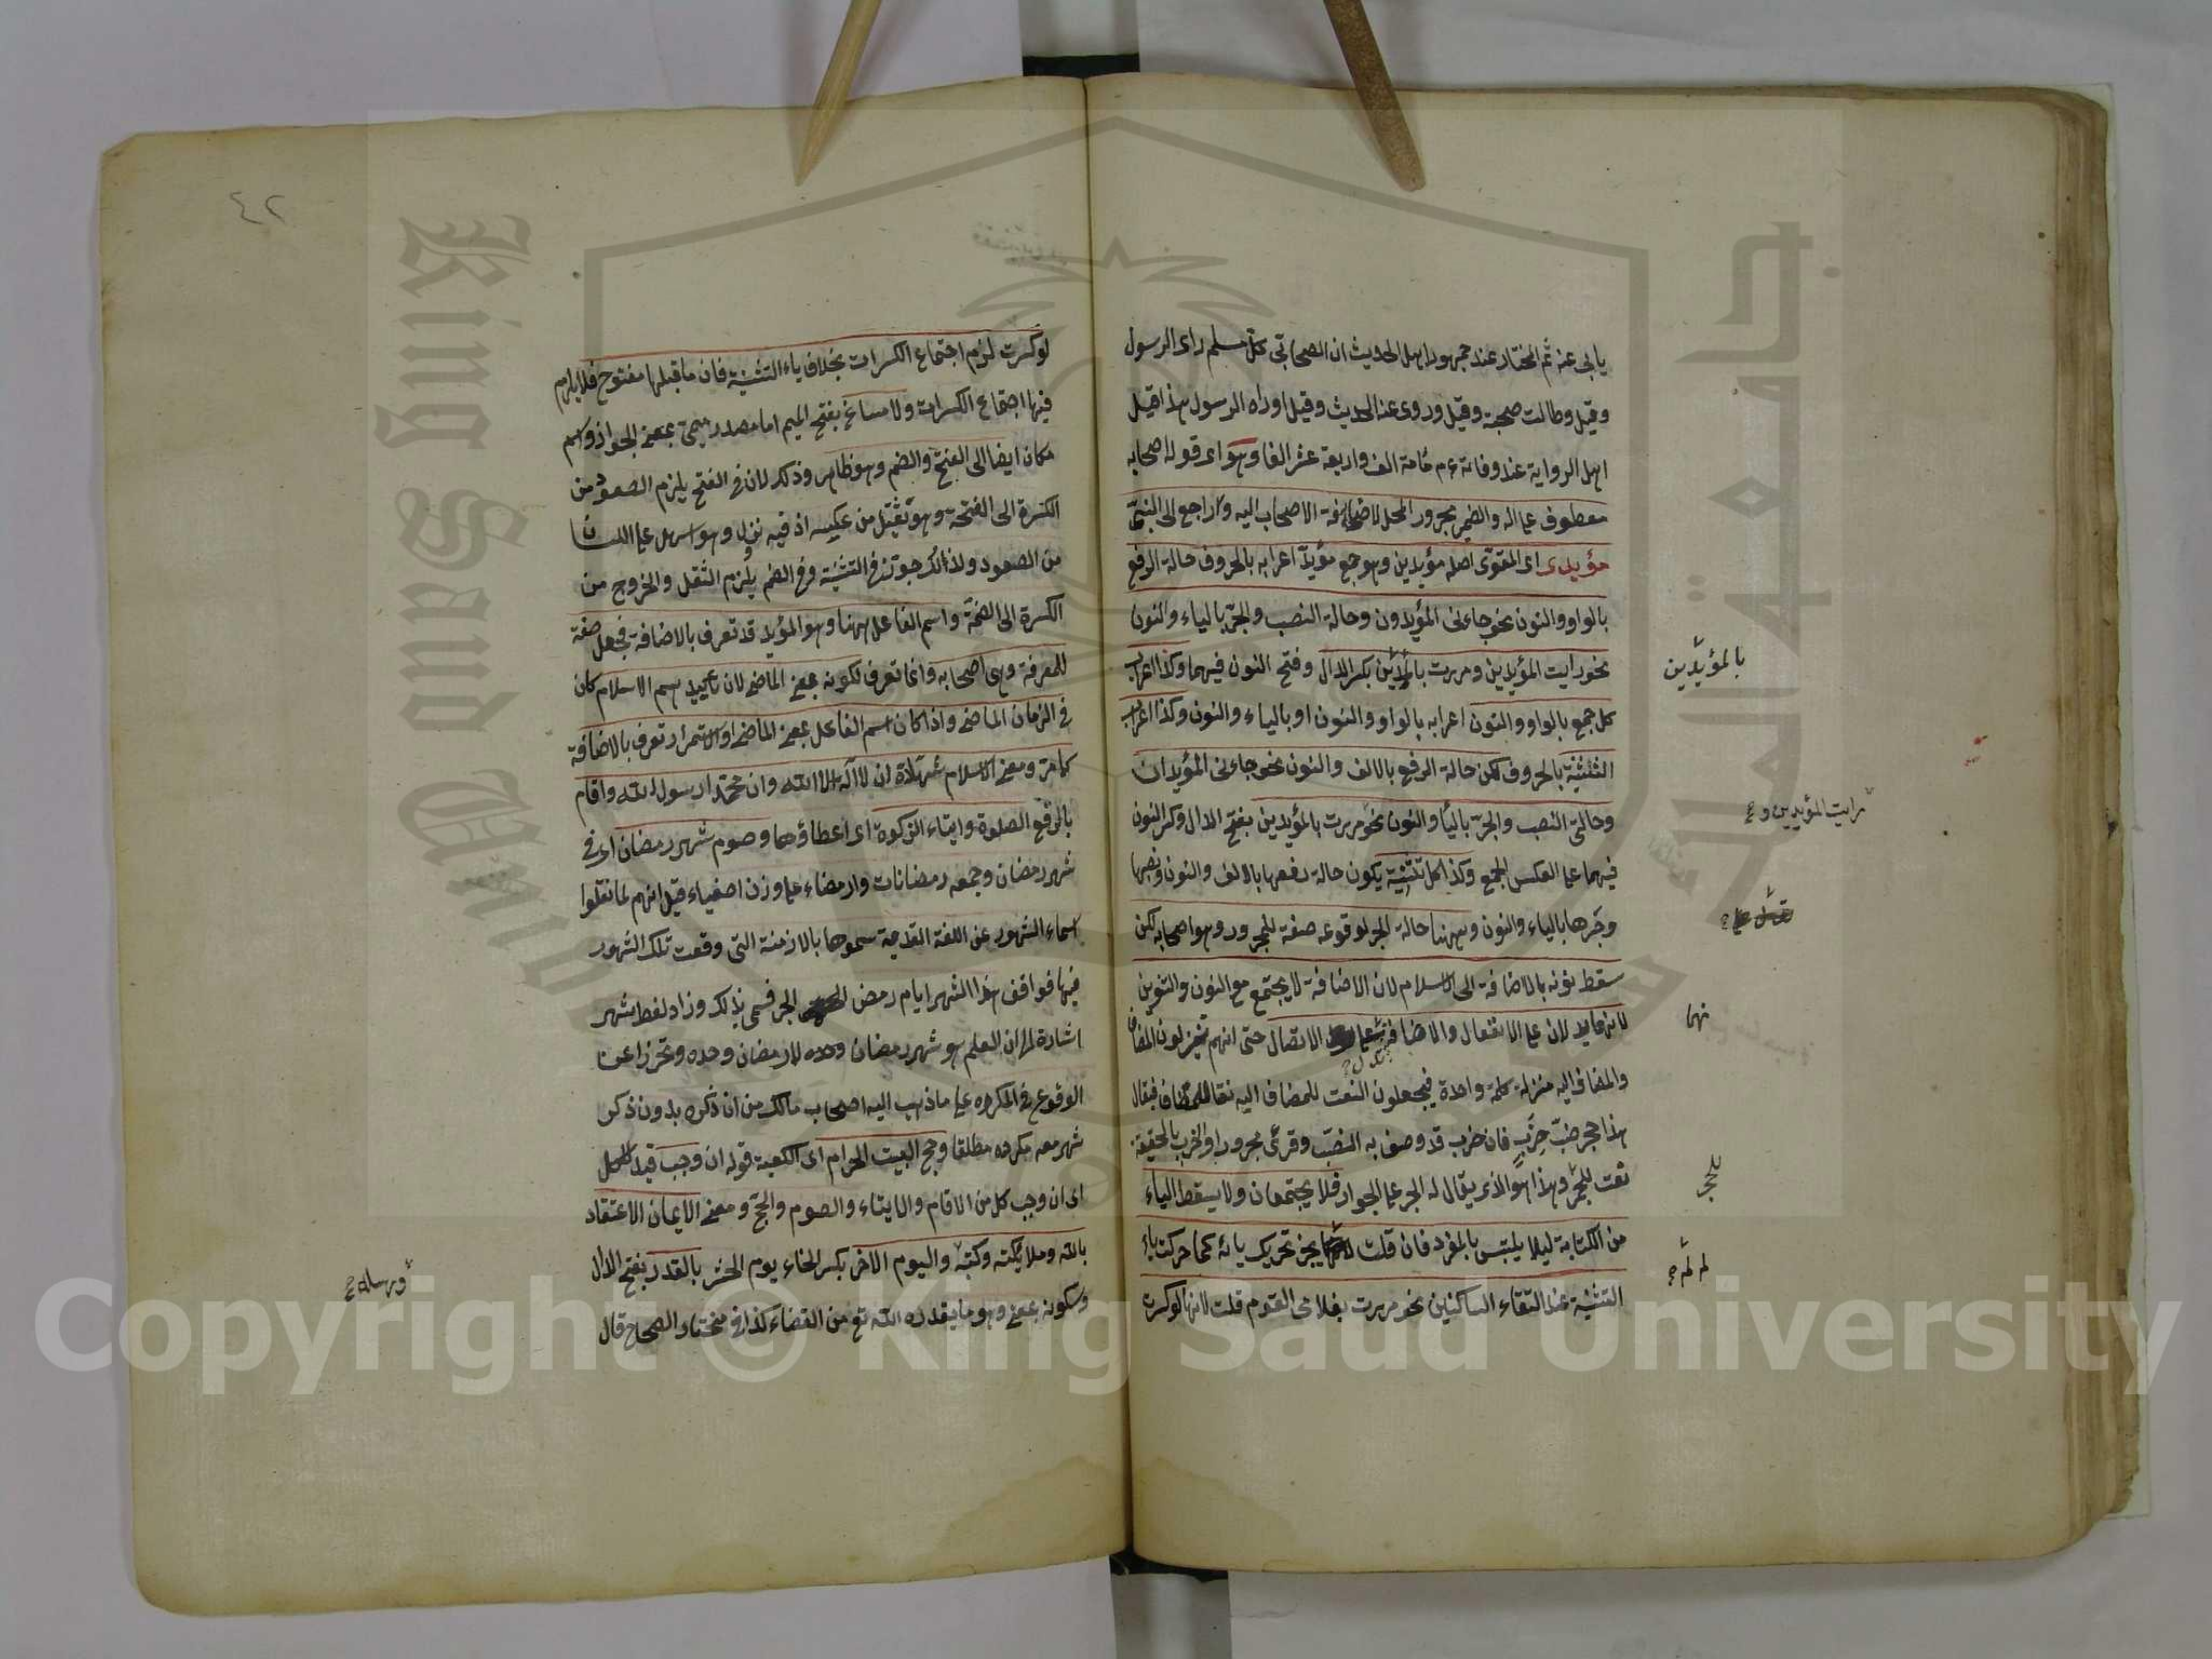 يابى عنه ثم المختار عند جمهور اهل الحديث ان الصحابى كل مسلم راى الرسول
وقيل وطالت صحبته وقيل وروى عنه الحديث وقيل او راه الرسول هذا قيل
اهل الرواية عند وفاته ءم مائة الف واربعة عشر الفا وهو اى قوله اصحابه
معطوف على اله والضمير مجرور المحل لاضافة الاصحاب اليه وراجع الى النبى
مؤيدى اى المقوى اصله مؤيدين وهو جمع مؤيد اعرابه بالحروف حالة الرفع
بالواو والنون نحو جاءنى المؤيدون وحالة النصب والجر بالياء والنون
نحو رايت المؤيدين ومررت بالمؤيدين بكسر الدال وفتح النون فيهما وكذا اعراب
كل جمع بالواو والنون اعرابه بالواو والنون او بالياء والنون وكذا اعراب
التثنية بالحروف لكن حالة الرفع بالالف والنون نحو جاءنى المؤيدان
وحالتى النصب والجر بالياء والنون نحو مررت بالمؤيدين بفتح الدال وكسر النون
فيهما على العكس الجمع وكذا كل تثنية يكون حالة رفعها بالالف والنون ونصبها
وجرها بالياء والنون وههنا حالة الجر لوقوعه صفة للمجرور وهو اصحابه لكن
سقط نونه بالاضافة الى الاسلام لان الاضافة لا يجتمع مع النون والتنوين
لانهما يدلان على الانفعال والاضافة على الاتصال حتى انهم ينزلون المضاف
والمضاف اليه منزلة كلمة واحدة فيجعلون النعت للمضاف اليه نعتا للمضاف فيقال
هذا حجر ضب خرب فان خرب قد وصف به الضب وقرئ مجرورا والخرب بالحقيقة
نعت للحجر وهذا هو الذى يقال له الجر على الجوار فلا يجتمعان ولا يسقط الياء
من الكتابة ليلا يلتبس بالمفرد فان قلت يجز تحريك يائه كما حركت ياء
التثنية عند التقاء الساكنين نحو مررت بغلامى القوم قلت لانها لو كسرت
بالمؤيدين
رايت المؤيدين و
نهما
للحجر
لم لم
٤٢
لو كسرت لزم اجتماع الكسرات بخلاف ياء التثنية فان ما قبلها مفتوح فلا يلزم
فيها اجتماع الكسرات ولا مساغ بفتح الميم اما مصدر ميمى بمعنى الجواز او اسم
مكان ايضا الى الفتح والضم وهو ظاهر وذلك لان فى الفتح يلزم الصعود من
الكسرة الى الفتحة وهو ثقيل من عكسه اذ فيه نزل وهو اسهل على اللسان
من الصعود ولذلك جوز فى التثنية وفى الضم يلزم الثقل والخروج من
الكسرة الى الضمة واسم الفاعل ههنا وهو المؤيد قد تعرف بالاضافة فجعل صفة
للمعرفة وهى اصحابه وانما تعرف لكونه بمعنى الماضى لان تأييدهم الاسلام كان
فى الزمان الماضى واذا كان اسم الفاعل بمعنى الماضى او الاستمرار تعرف بالاضافة
كما مر ومعنى الاسلام شهادة ان لا اله الا الله وان محمدا رسول الله واقام
بالرفع الصلوة وايتاء الزكوة اى اعطاؤهما وصوم شهر رمضان اى فى
شهر رمضان وجمعه رمضانات وارمضاء على وزن اصفياء قيل انهم لما نقلوا
اسماء الشهور عن اللغة القديمة سموها بالازمنة التى وقعت تلك الشهور
فيها فوافق هذا الشهر ايام رمض الحر فسمى بذلك وزاد لفظ شهر
اشارة الى ان العلم هو شهر رمضان وحده لا رمضان وحده وتحرزا عن
الوقوع فى المكروه على ما ذهب اليه اصحاب مالك من ان ذكره بدون ذكر
شهر معه مكروه مطلقا وحج البيت الحرام اى الكعبة قوله ان وجب قيد للكل
اى ان وجب كل من الاقام والايتاء والصوم والحج ومعنى الايمان الاعتقاد
بالله وملائكته وكتبه واليوم الاخر بكسر الخاء يوم الحشر بالقدر بفتح الدال
وسكونه بمعنى وهو ما يقدره الله تع من القضاء كذا فى مختار الصحاح قال
ورسله
Copyright © King Saud University
King Saud University
جامعة الملك سعود